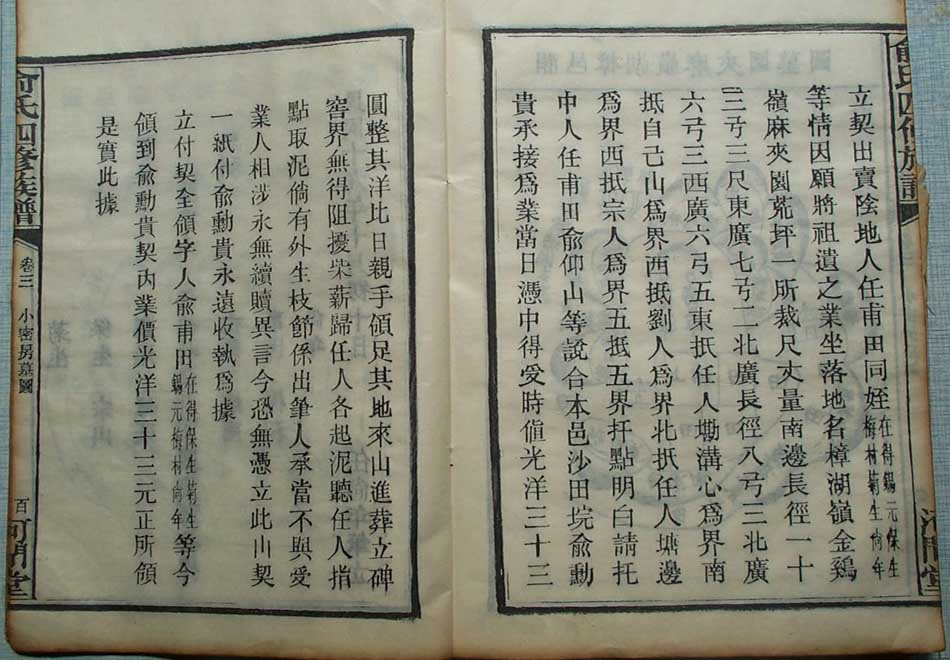 立契出賣陰地人任甫田同姪在得錫元保生梅村菊生尚年
等情因願將祖遺之業坐落地名樟湖嶺金鷄
嶺麻夾園荒坪一所裁尺丈量南邊長徑一十
三弓三尺東廣七弓二北廣長徑八弓三北廣
六弓三西廣六弓五東扺任人墈溝心爲界南
抵自己山爲界西抵劉人爲界北扺任人塘邊
爲界西抵宗人爲界五抵五界扦點明白請托
中人任甫田俞仰山等說合本邑沙田垸俞勳
貴承接爲業當日憑中得受時値光洋三十三
圓整其洋比日親手領足其地來山進葬立碑
窖界無得阻擾柴薪歸任人各起泥聽任人指
點取泥倘有外生枝節係出筆人承當不與受
業人相涉永無續贖異言今恐無憑立此山契
一紙付俞勳貴永遠收執爲據
立付契全領字人俞甫田在得保生菊生錫元梅村尚年等今
領到俞勳貴契內業價光洋三十三元正所領
是實此據
俞氏四修族譜
卷三 小密房墓圖
百
河間堂